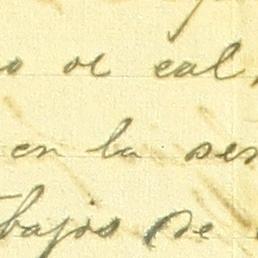 o de cal
en la ser
bajos de